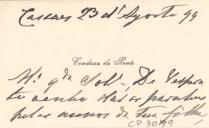 Cascaes 23 d'Agosto 99
Condessa da Ponte
Mt. qda Sobr. De
te venho dar os parabens
pelos annos da tua filha
CP 3099